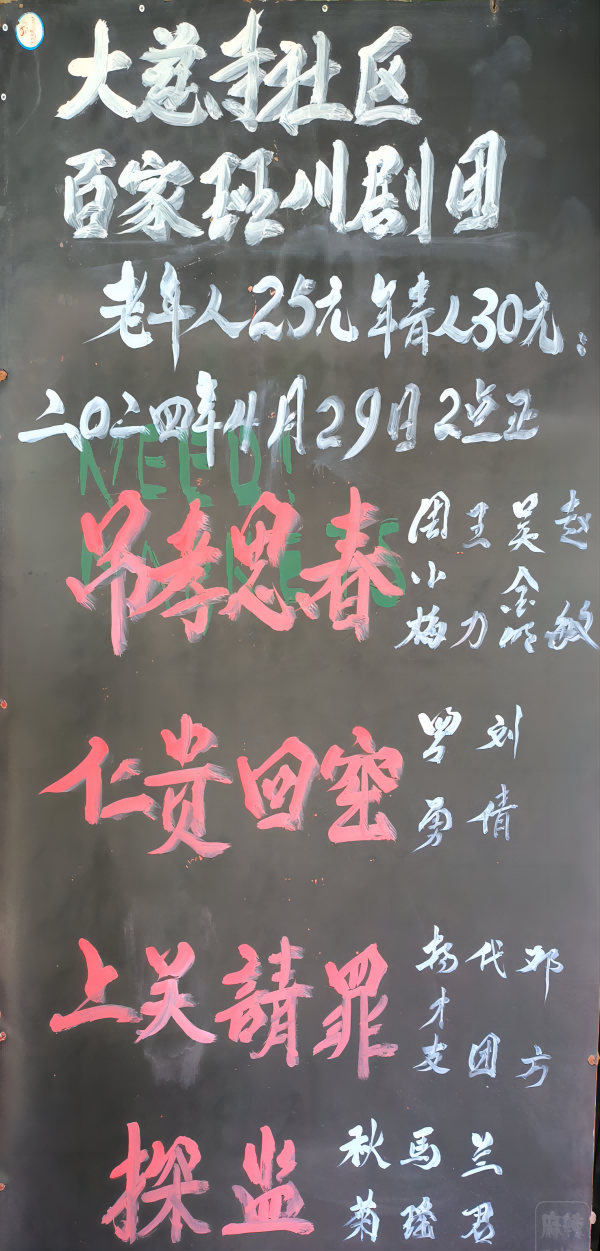 大慈寺社区
百家班川剧团
老年人25元年青人30元:
二0二四年4月29日2点正
NEED!
吊孝思春 周小梅 王力 吴金明 赵敏
仁贵回窑 罗勇 刘倩
上关請罪 杨才支 代团 邓方
探监 秋菊 馬瑶 兰君
麻辣